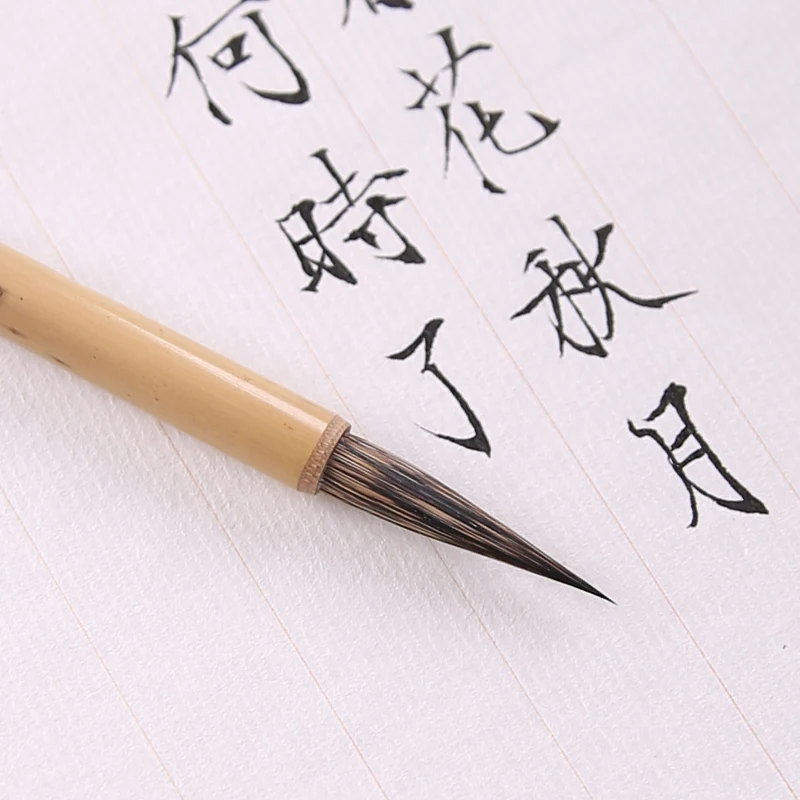 春花秋月
何時了